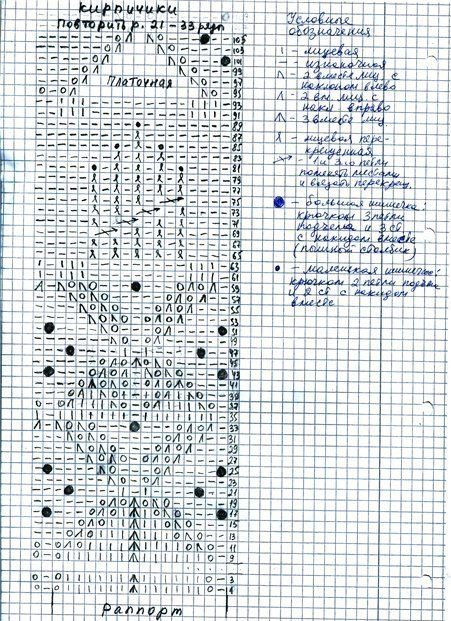 кирпичики
повторить р. 21 – 33 ряды
Условные
обозначения
| – лицевая
– – изнаночная
2 вместе лиц. с
наклоном влево
2 вм. лиц. с
накл вправо
3 вместе лиц
– лицевая пере-
крещенная
– 1 и 3 петли
поменять местами
и вязать перекрещ.
– большая шишечка:
крючком 3 петли
подъема и 3 ст
с накидом вместе
(пышный столбик)
– маленькая шишечка:
крючком 2 петли подъема
и 2 ст с накидом
вместе
Платочная
105
103
101
99
97
95
93
91
89
87
85
83
81
79
77
75
73
71
69
67
65
63
61
59
57
55
53
51
49
47
45
43
41
39
37
35
33
31
29
27
25
23
21
19
17
15
13
11
9
3
1
Раппорт